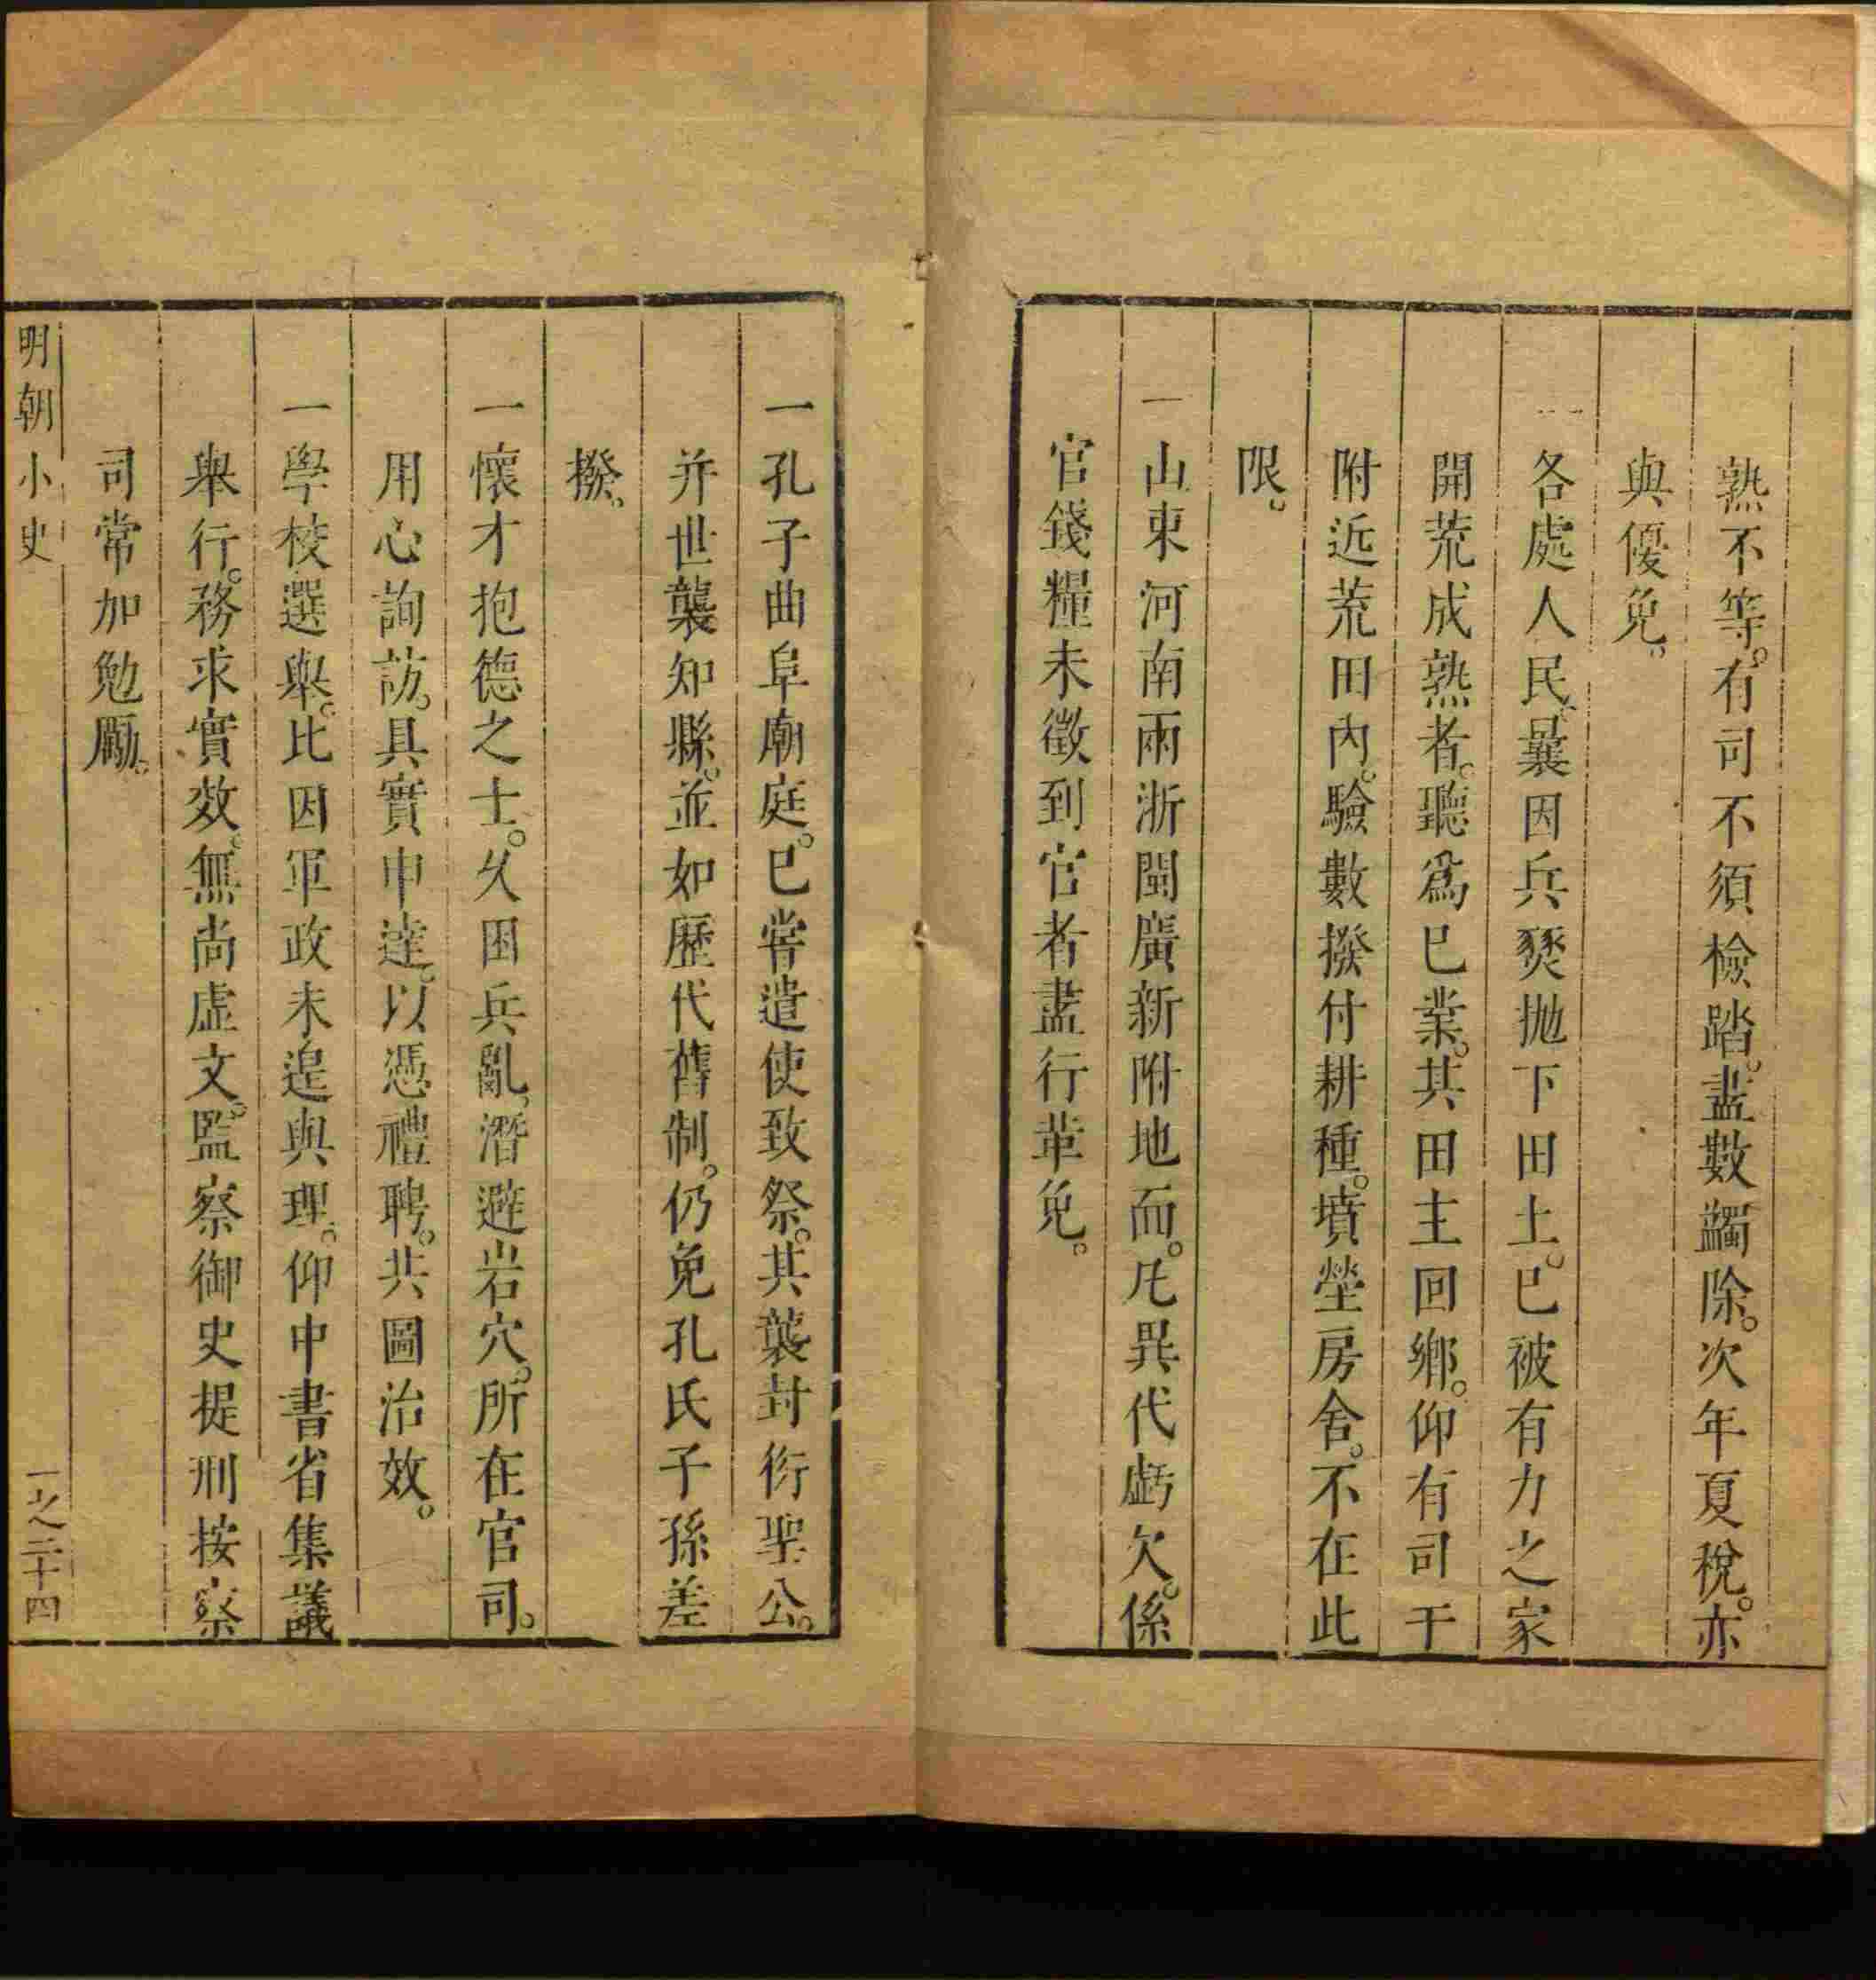 熟不等。有司不須檢踏。盡數蠲除。次年夏稅。亦
與優免。
一各處人民。曩因兵燹抛下田土。已被有力之家
開荒成熟者。聽爲已業。其田主回鄉。仰有司于
附近荒田內。驗數撥付耕種。墳塋房舍。不在此
限。
一山東河南兩浙閩廣新附地面。凡異代虧欠。係
官錢糧未徵到官者盡行革免。
一孔子曲阜廟庭。已嘗遣使致祭。其襲封衍聖公。
并世襲知縣。並如歷代舊制。仍免孔氏子孫差
撥。
一懷才抱德之士。久困兵亂。潛避岩穴。所在官司。
用心詢訪。具實申達。以憑禮聘。共圖治效。
一學校選舉。比因軍政未遑與理。仰中書省集議
舉行。務求實效。無尚虛文。監察御史提刑按察
司常加勉勵。
明朝小史
一之二十四